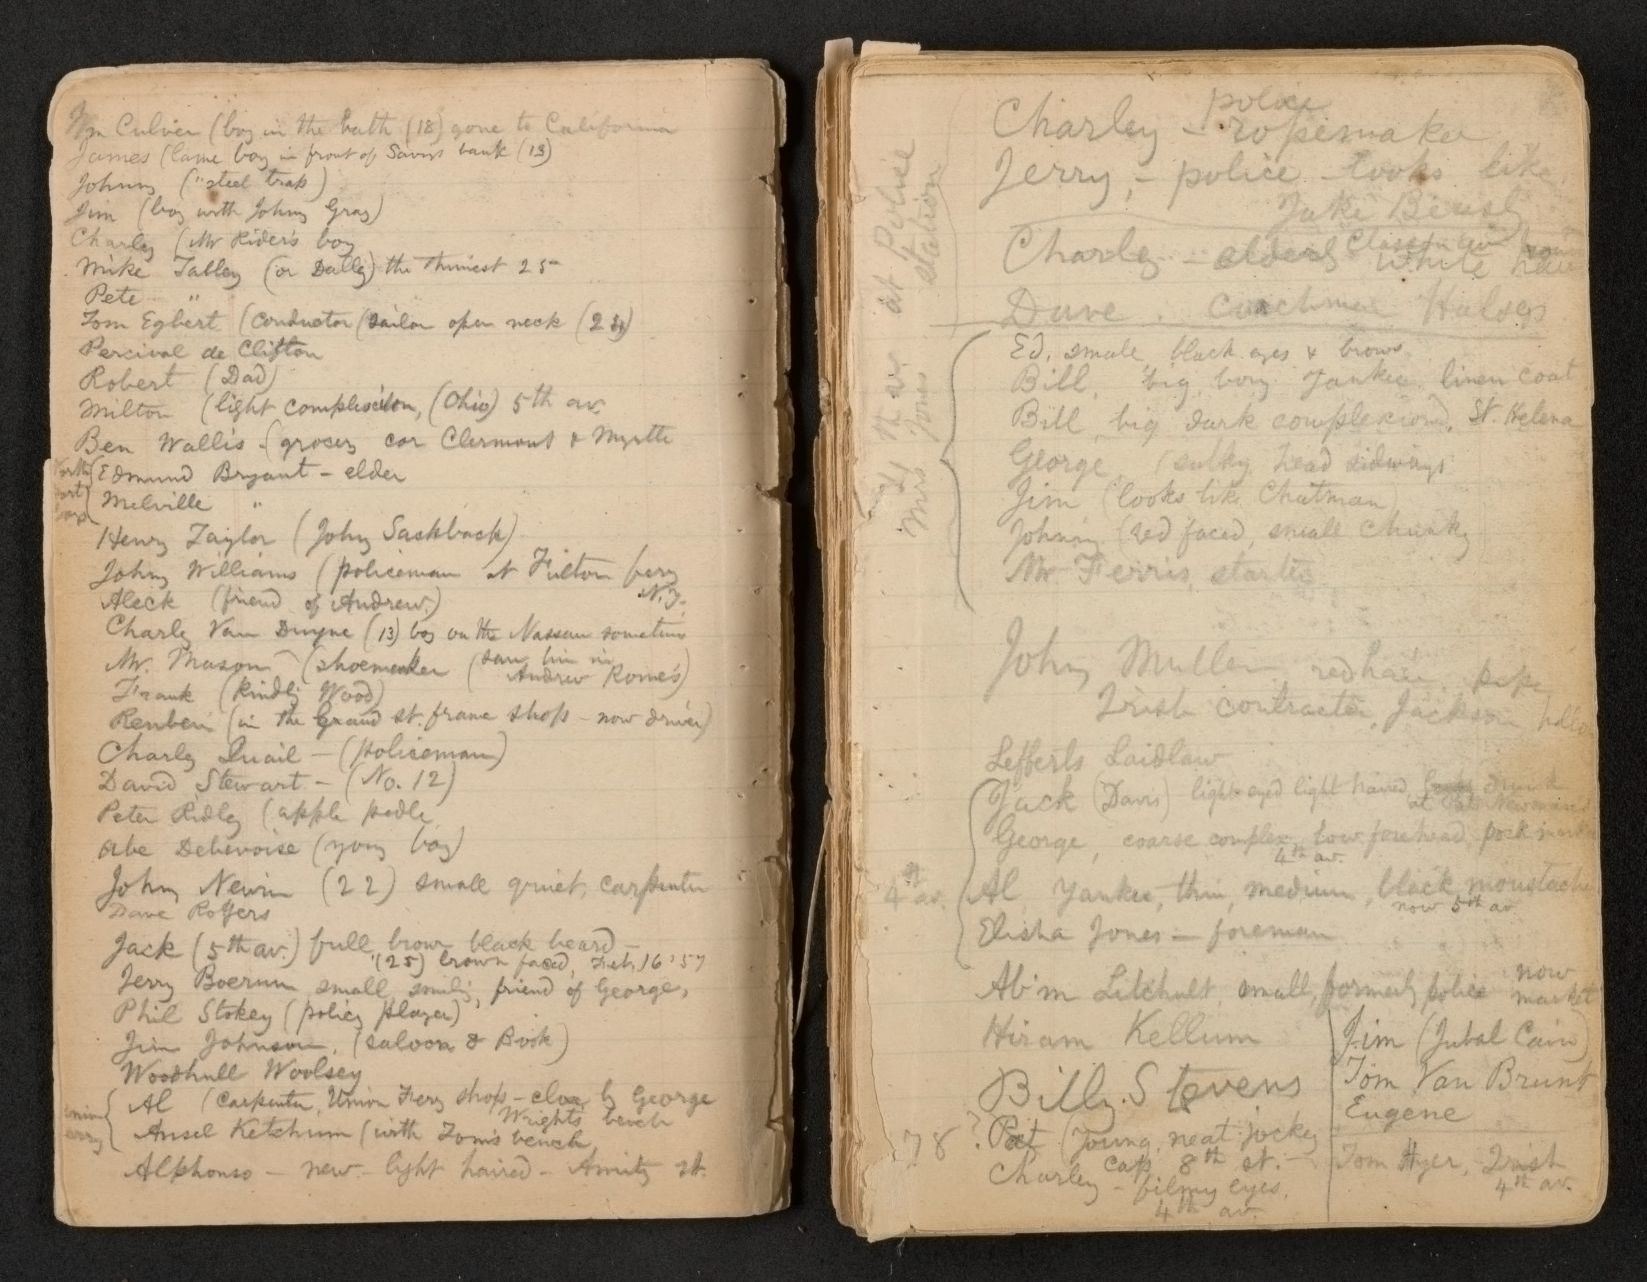 Wm Culver (boy in the bath (18) gone to California
James (lame boy in front of Savgs bank (13)
Johnny ("steel trap)
Jim (boy with Johny Gray)
Charley (Mr Rider's boy
Mike Talley (or Dally) the thinnest 25
Pete "
Tom Egbert (conductor (sailor open neck (2
Percival de Clifton
Robert (Dad)
Milton (light complexion, (Ohio) 5th av.
Ben Wallis (grocery cor Clermont & Myrtle
Edmund Bryant – elder
Melville "
Henry Taylor (John Sackback)
Johny Williams (policeman at Fulton ferry
N.Y.
Aleck (friend of Andrew.)
Charley Van Duyne (13) boy on the Nassau sometimes
Mr. Mason – (shoemaker (saw him in
Andrew Rome's)
Frank (kindling Wood)
Reuben (in the Grand st. frame shop – now driver)
Charley Quail – (policeman)
David Stewart – (No. 12)
Peter Ridley (apple pedle
Abe Debevoise (young boy)
John Nevin (22) small quiet, carpenter
Dave Rolfers
Jack (5th av.) full brown black beard –
(25) brown faced, Feb, 16 '57
Jerry Boerum small, smiling, friend of George,
Phil Stokey (policy player)
Jim Johnson, (saloon & Book)
Woodhull Woolsey
Al (carpenter, Union Ferry shop – close by George
Wright's bench
Ansel Ketchum (with Tom's bench
Alphonso – new – light haired – Amity st.
at Police
station
Mrs Jones
police
Charley – ropemaker
Jerry, – police – looks like
Charley – elderly white hair
Dave. coachman Halsey
Ed, small, black eyes & brows
Bill, big, boy. Yankee, linen coat
Bill, big dark complexion, St. Helena
George, (sulky, head sideways
Jim (looks like Chatman)
Johnny (red faced, small chunky
Mr Ferris, starter
John Muller red hair, pipe
Irish contractor, Jackson
Lefferts Laidlaw
Jack (Davis) light-eyed light haired, drunk
George, coarse complex, low forehead, pock marks
4th av.
4th av.
Al, Yankee, thin, medium, black moustache
now 5th av
Elisha Jones – foreman
Ab'm Litchult, small, formerly police now
market
Hiram Kellum
Jim (Jubal Cain)
Billy Stevens
Tom Van Brunt
Eugene
78 ? Pat (young, neat jockey
cap, 8th st. –
Tom Hyer, Irish
4th av.
Charley – filmy eyes,
4th av.